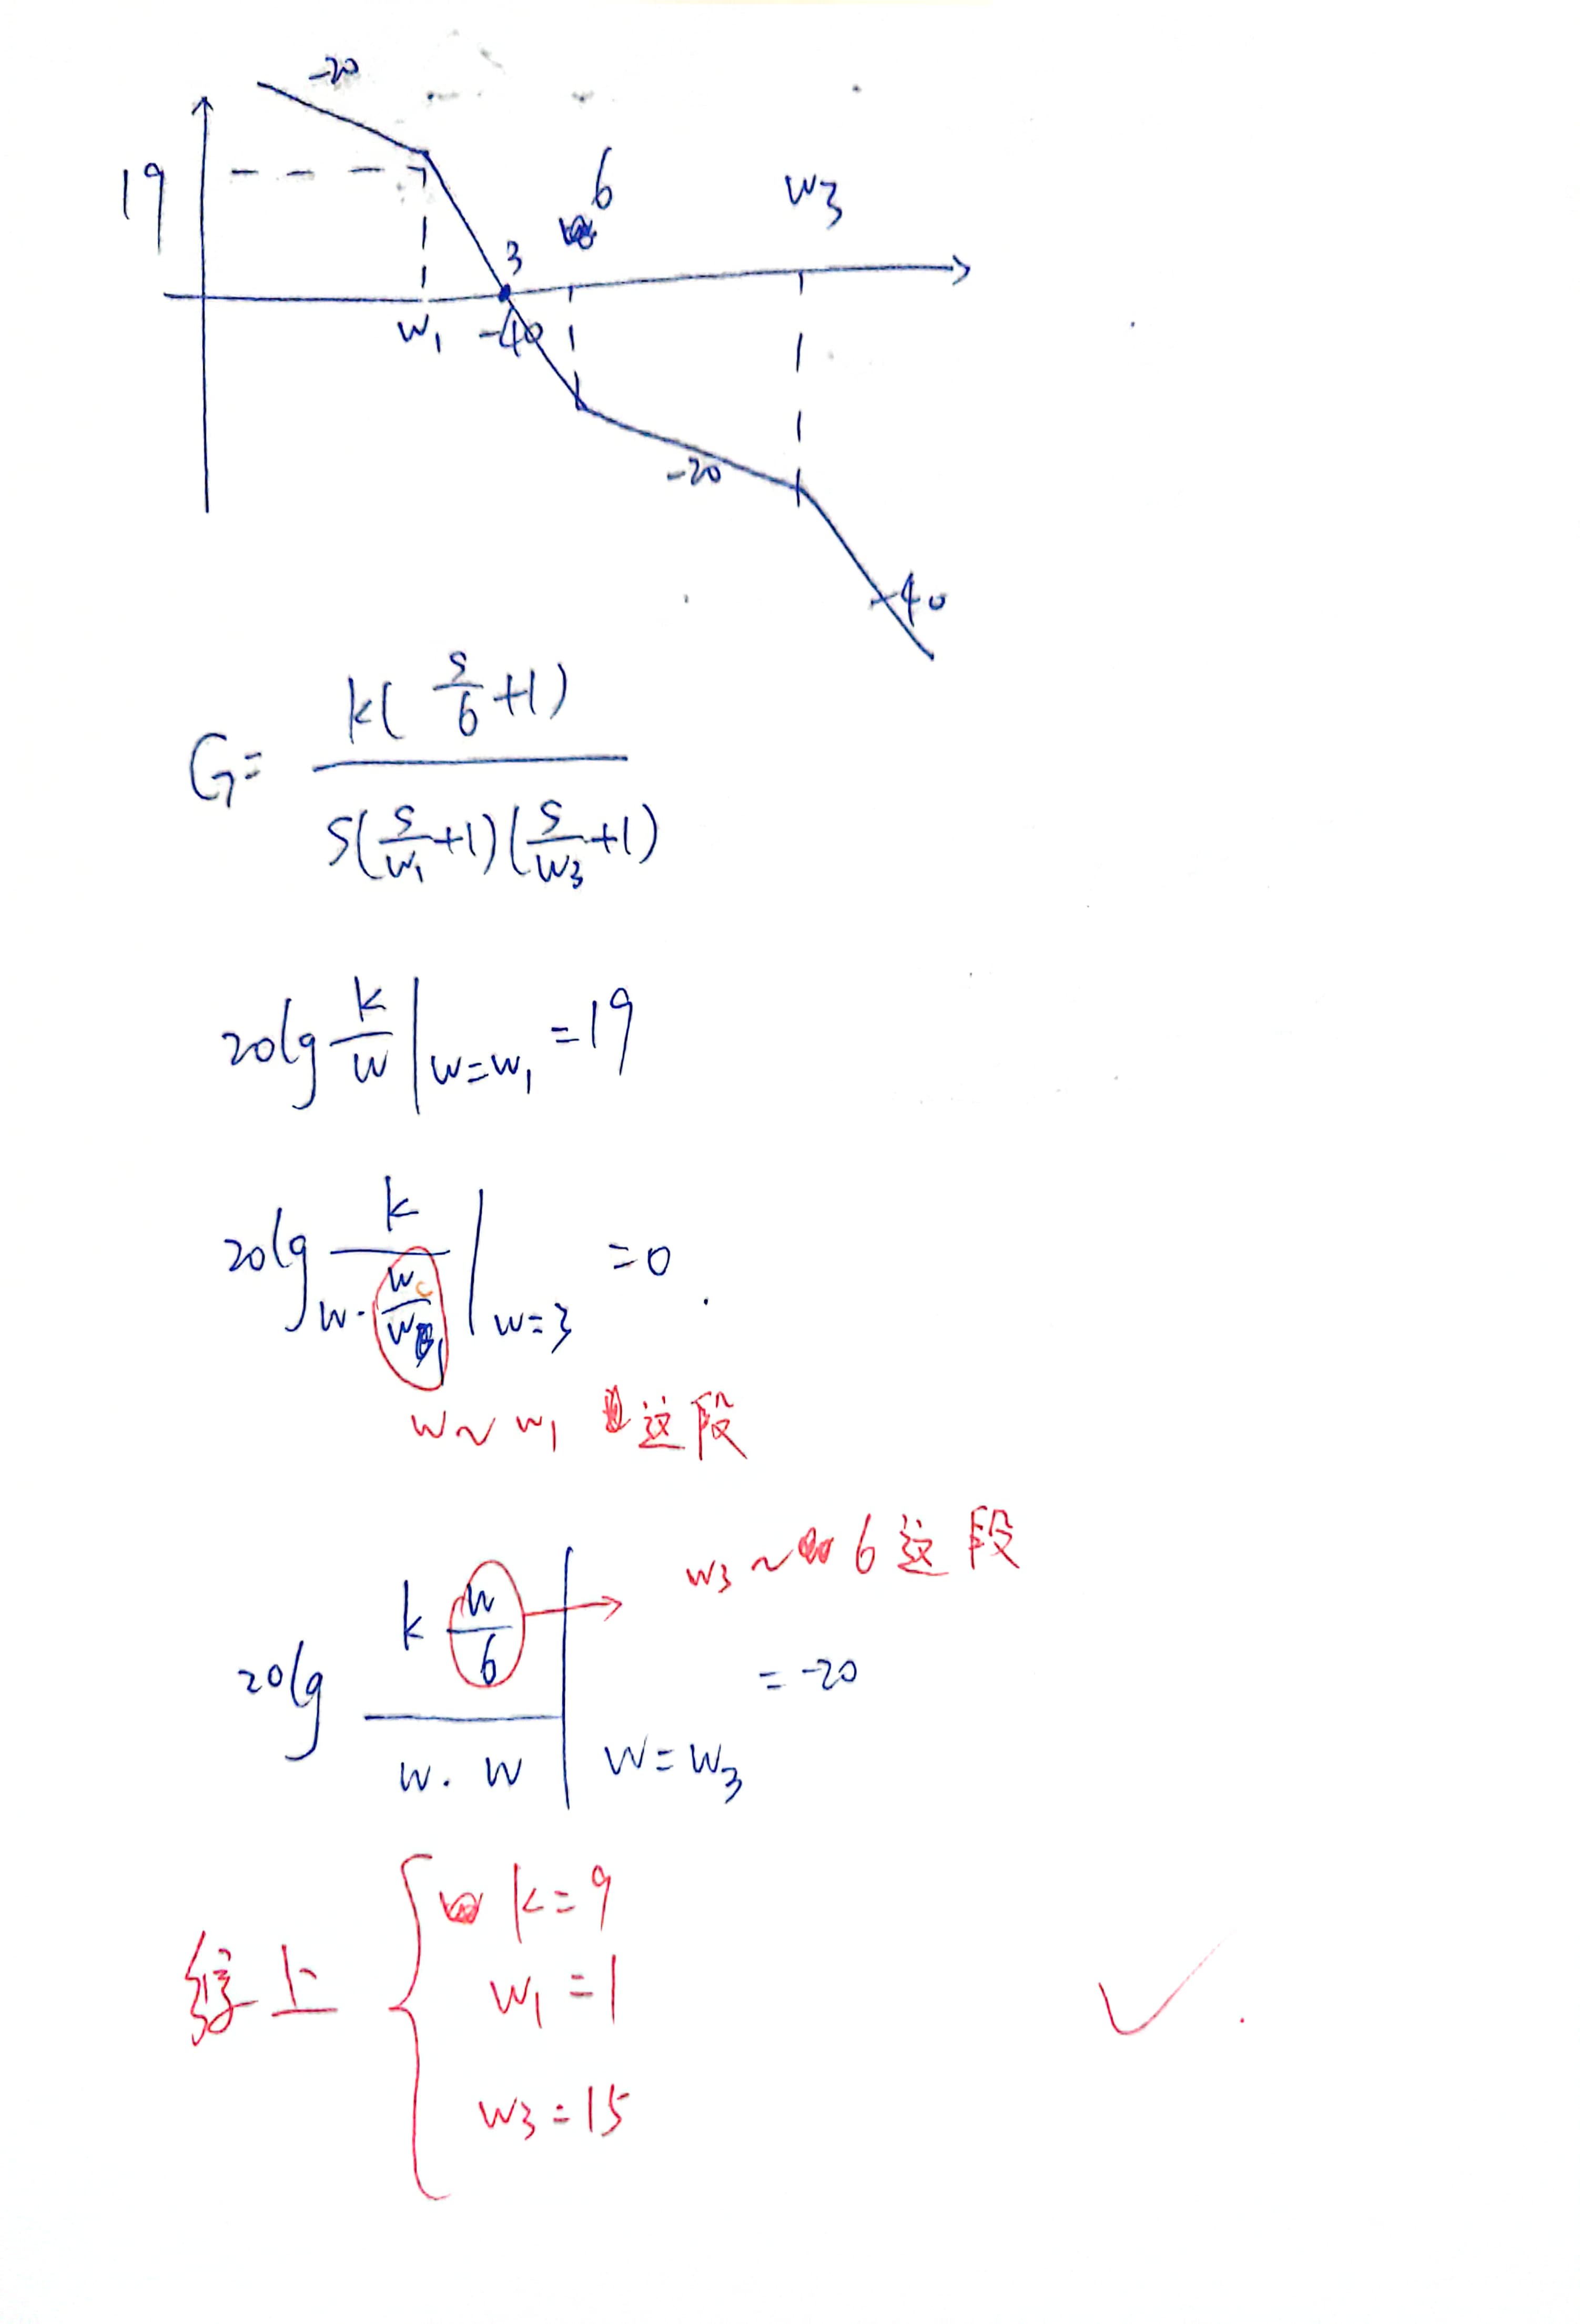 -20
19
6
w3
3
w1
-40
-20
-40
G= k( s/6 +1) / s( s/w1 +1)( s/w3 +1)
20lg k/w | w=w1 =19
20lg k / w· wc/w1 | w=3 =0.
w~w1 这段
w3~6 这段
20lg k w/6 / w·w | w=w3 =-20
综上 { k=9
w1=1
w3=15